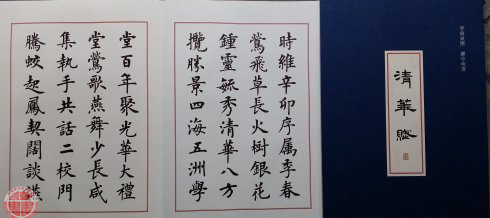 清華賦
時維辛卯序屬季春
鶯飛草長火樹銀花
鍾靈毓秀清華八方
攬勝景四海五洲學
堂百年聚光華大禮
堂鶯歌燕舞少長咸
集執手共話二校門
騰蛟起鳳契闊談讌